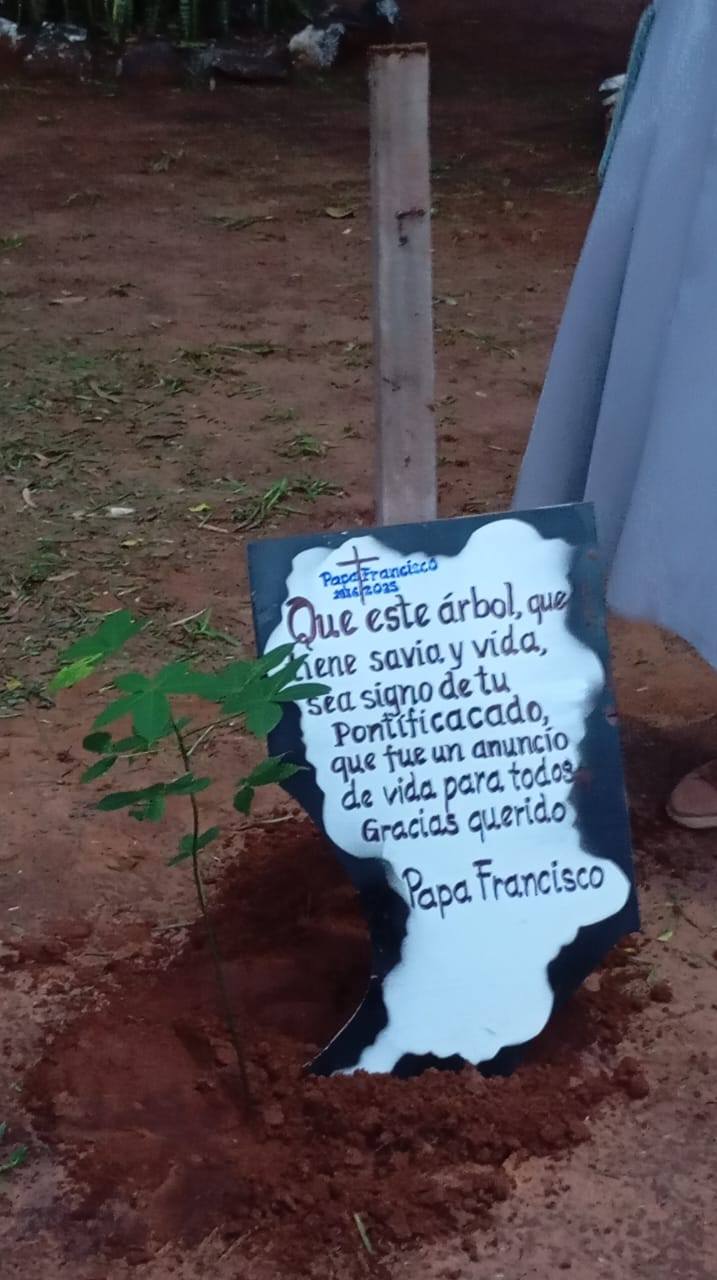 Papa Francisco
1936 2025
Que este árbol, que
tiene savia y vida,
sea signo de tu
Pontificacado,
que fue un anuncio
de vida para todos
Gracias querido
Papa Francisco